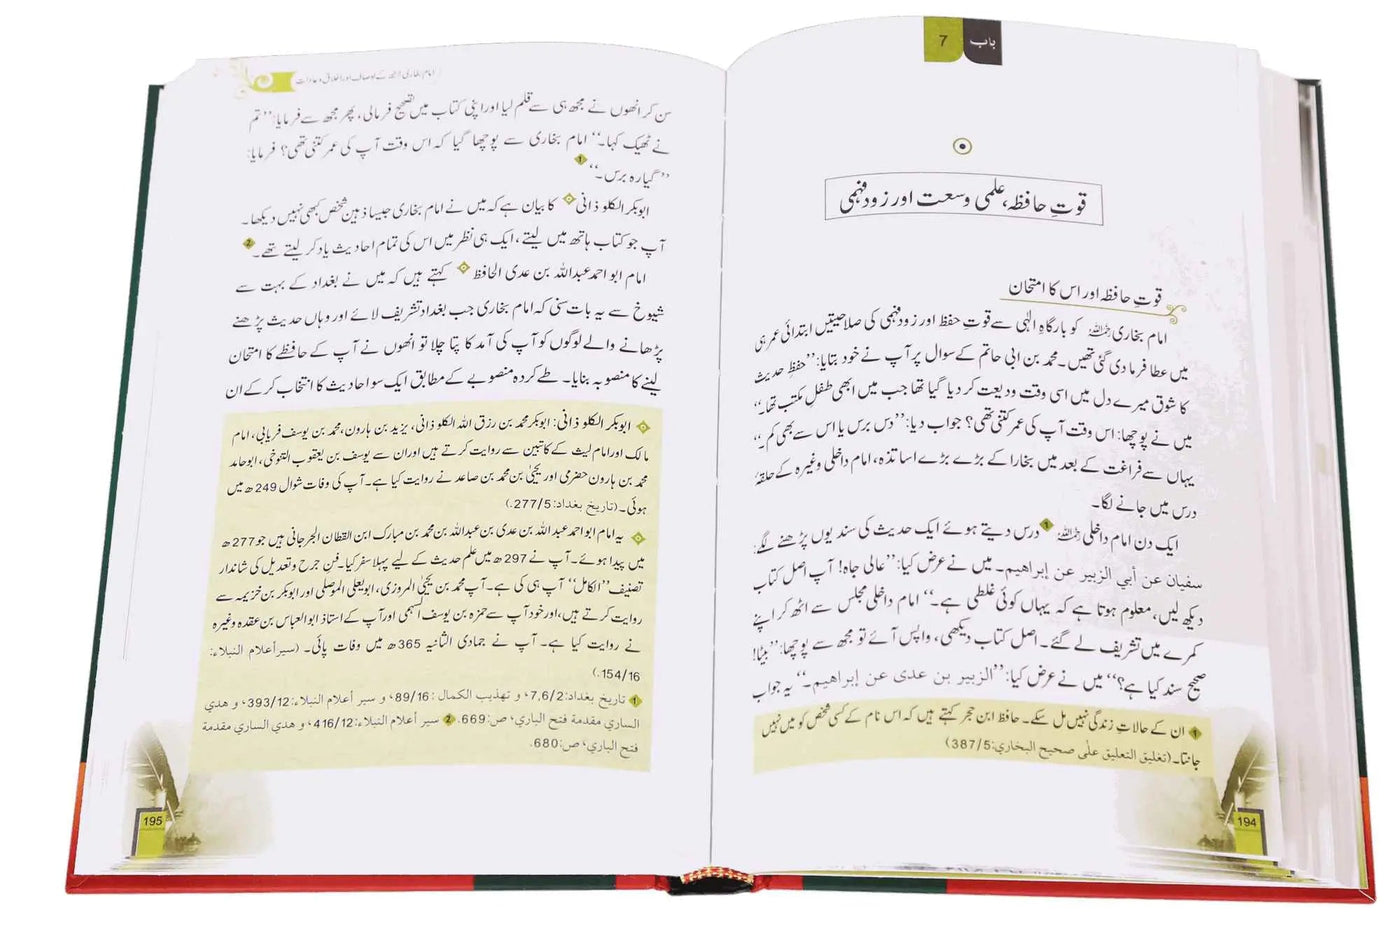 باب 7
قوتِ حافظہ، علمی وسعت اور زود فہمی
قوتِ حافظہ اور اس کا امتحان
امام بخاری رحمہ اللہ کو بارگاہِ الٰہی سے قوتِ حفظ اور زود فہمی کی صلاحیتیں ابتدائی عمر ہی
میں عطا فرما دی گئی تھیں۔ محمد بن ابی حاتم کے سوال پر آپ نے خود بتایا: ’’حفظِ حدیث
کا شوق میرے دل میں اسی وقت ودیعت کر دیا گیا تھا جب میں ابھی طفلِ مکتب تھا۔‘‘
میں نے پوچھا: اس وقت آپ کی عمر کتنی تھی؟ جواب دیا: ’’دس برس یا اس سے بھی کم۔‘‘
یہاں سے فراغت کے بعد میں بخارا کے بڑے بڑے اساتذہ، امام داخلی وغیرہ کے حلقۂ
درس میں جانے لگا۔
ایک دن امام داخلی رحمہ اللہ 1 درس دیتے ہوئے ایک حدیث کی سند یوں پڑھنے لگے:
سفیان عن أبي الزبير عن إبراهيم۔ میں نے عرض کیا: ’’عالی جاہ! آپ اصل کتاب
دیکھ لیں، معلوم ہوتا ہے کہ یہاں کوئی غلطی ہے۔‘‘ امام داخلی مجلس سے اٹھ کر اپنے
کمرے میں تشریف لے گئے۔ اصل کتاب دیکھی، واپس آئے تو مجھ سے پوچھا: ’’بیٹا!
صحیح سند کیا ہے؟‘‘ میں نے عرض کیا: ’’الزبير بن عدی عن إبراهيم۔‘‘ یہ جواب
1 ان کے حالاتِ زندگی نہیں مل سکے۔ حافظ ابن حجر کہتے ہیں کہ اس نام کے کسی شخص کو میں نہیں
جانتا۔ (تغليق التعليق على صحيح البخاري: 387/5)
194
امام بخاری رحمہ اللہ کے اوصاف اور اخلاق و عادات
سن کر انھوں نے مجھ ہی سے قلم لیا اور اپنی کتاب میں تصحیح فرما لی، پھر مجھ سے فرمایا: ’’تم
نے ٹھیک کہا۔‘‘ امام بخاری سے پوچھا گیا کہ اس وقت آپ کی عمر کتنی تھی؟ فرمایا:
’’گیارہ برس۔‘‘ 1
ابوبکر الکلوذانی کا بیان ہے کہ میں نے امام بخاری جیسا ذہین شخص کبھی نہیں دیکھا۔
آپ جو کتاب ہاتھ میں لیتے، ایک ہی نظر میں اس کی تمام احادیث یاد کر لیتے تھے۔ 2
امام ابو احمد عبداللہ بن عدی الحافظ کہتے ہیں کہ میں نے بغداد کے بہت سے
شیوخ سے یہ بات سنی کہ امام بخاری جب بغداد تشریف لائے اور وہاں حدیث پڑھنے
پڑھانے والے لوگوں کو آپ کی آمد کا پتا چلا تو انھوں نے آپ کے حافظے کا امتحان
لینے کا منصوبہ بنایا۔ طے کردہ منصوبے کے مطابق ایک سو احادیث کا انتخاب کر کے ان
ابوبکر الکلوذانی: ابوبکر محمد بن رزق اللہ الکلوذانی، یزید بن ہارون، محمد بن یوسف فریابی، امام
مالک اور امام لیث کے کاتبین سے روایت کرتے ہیں اور ان سے یوسف بن یعقوب التنوخی، ابو حامد
محمد بن ہارون حضرمی اور یحییٰ بن محمد بن صاعد نے روایت کیا ہے۔ آپ کی وفات شوال 249ھ میں
ہوئی۔ (تاریخ بغداد: 277/5.)
یہ امام ابو احمد عبداللہ بن عدی بن عبداللہ بن محمد بن مبارک ابن القطان الجرجانی ہیں جو 277ھ
میں پیدا ہوئے۔ آپ نے 297ھ میں علم حدیث کے لیے پہلا سفر کیا۔ فن جرح و تعدیل کی شاندار
تصنیف ’’الکامل‘‘ آپ ہی کی ہے۔ آپ محمد بن یحییٰ المروزی، ابو یعلی الموصلی اور ابوبکر بن خزیمہ سے
روایت کرتے ہیں، اور خود آپ سے حمزہ بن یوسف السہمی اور آپ کے استاذ ابو العباس بن عقدہ وغیرہ
نے روایت کیا ہے۔ آپ نے جمادی الثانیہ 365ھ میں وفات پائی۔ (سير أعلام النبلاء:
154/16.)
1 تاريخ بغداد: 7,6/2، و تهذيب الكمال: 89/16، و سير أعلام النبلاء: 393/12، و هدي
الساري مقدمة فتح الباري، ص: 669. 2 سير أعلام النبلاء: 416/12، و هدي الساري مقدمة
فتح الباري، ص: 680.
195